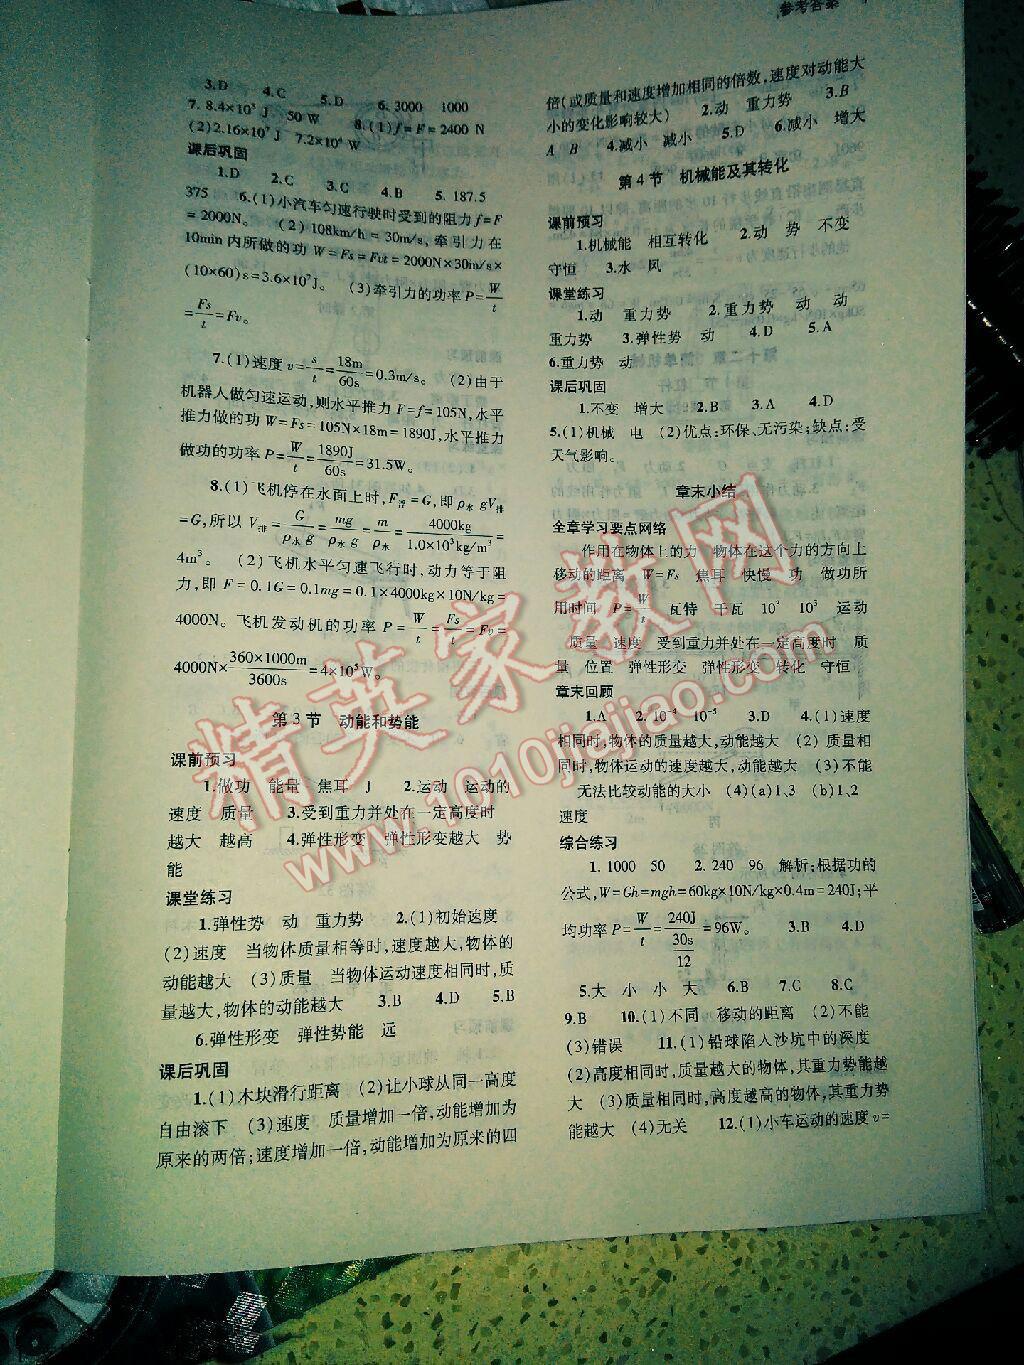 参考答案
3.D 4.C 5.D 6.3000 1000
7.8.4×10³ J 50 W 8.(1)f=F=2400 N
(2)2.16×10⁷ J 7.2×10⁴ W
课后巩固
1.D 2.C 3.C 4.B 5.187.5
375 6.(1)小汽车匀速行驶时受到的阻力f=F
=2000N。 (2)108km/h=30m/s,牵引力在
10min内所做的功W=Fs=Fvt=2000N×30m/s×
(10×60)s=3.6×10⁷J。 (3)牵引力的功率P=W/t
=Fs/t=Fv。
7.(1)速度v=s/t=18m/60s=0.3m/s。 (2)由于
机器人做匀速运动,则水平推力F=f=105N,水平
推力做的功W=Fs=105N×18m=1890J,水平推力
做功的功率P=W/t=1890J/60s=31.5W。
8.(1)飞机停在水面上时,F浮=G,即ρ水gV排
=G,所以V排=G/ρ水g=mg/ρ水g=m/ρ水=4000kg/1.0×10³kg/m³=
4m³。 (2)飞机水平匀速飞行时,动力等于阻
力,即F=0.1G=0.1mg=0.1×4000kg×10N/kg=
4000N。飞机发动机的功率P=W/t=Fs/t=Fv=
4000N×360×1000m/3600s=4×10⁵W。
第3节 动能和势能
课前预习
1.做功 能量 焦耳 J 2.运动 运动的
速度 质量 3.受到重力并处在一定高度时
越大 越高 4.弹性形变 弹性形变越大 势
能
课堂练习
1.弹性势 动 重力势 2.(1)初始速度
(2)速度 当物体质量相等时,速度越大,物体的
动能越大 (3)质量 当物体运动速度相同时,质
量越大,物体的动能越大 3.B 4.D 5.B
6.弹性形变 弹性势能 远
课后巩固
1.(1)木块滑行距离 (2)让小球从同一高度
自由滚下 (3)速度 质量增加一倍,动能增加为
原来的两倍;速度增加一倍,动能增加为原来的四
倍(或质量和速度增加相同的倍数,速度对动能大
小的变化影响较大) 2.动 重力势 3.B
A B 4.减小 减小 5.D 6.减小 增大
第4节 机械能及其转化
课前预习
1.机械能 相互转化 2.动 势 不变
守恒 3.水 风
课堂练习
1.动 重力势 2.重力势 动 动
重力势 3.弹性势 动 4.D 5.A
6.重力势 动
课后巩固
1.不变 增大 2.B 3.A 4.D
5.(1)机械 电 (2)优点:环保、无污染;缺点:受
天气影响。
章末小结
全章学习要点网络
作用在物体上的力 物体在这个力的方向上
移动的距离 W=Fs 焦耳 快慢 功 做功所
用时间 P=W/t 瓦特 千瓦 10³ 10³ 运动
质量 速度 受到重力并处在一定高度时 质
量 位置 弹性形变 弹性形变 转化 守恒
章末回顾
1.A 2.10⁻⁴ 10⁻⁵ 3.D 4.(1)速度
相同时,物体的质量越大,动能越大 (2)质量相
同时,物体运动的速度越大,动能越大 (3)不能
无法比较动能的大小 (4)(a)1、3 (b)1、2
速度
综合练习
1.1000 50 2.240 96 解析:根据功的
公式,W=Gh=mgh=60kg×10N/kg×0.4m=240J;平
均功率P=W/t=240J/(30s/12)=96W。 3.B 4.D
5.大 小 小 大 6.B 7.C 8.C
9.B 10.(1)不同 移动的距离 (2)不能
(3)错误 11.(1)铅球陷入沙坑中的深度
(2)高度相同时,质量越大的物体,其重力势能越
大 (3)质量相同时,高度越高的物体,其重力势
能越大 (4)无关 12.(1)小车运动的速度v=
精英家教网
www.1010jiajiao.com